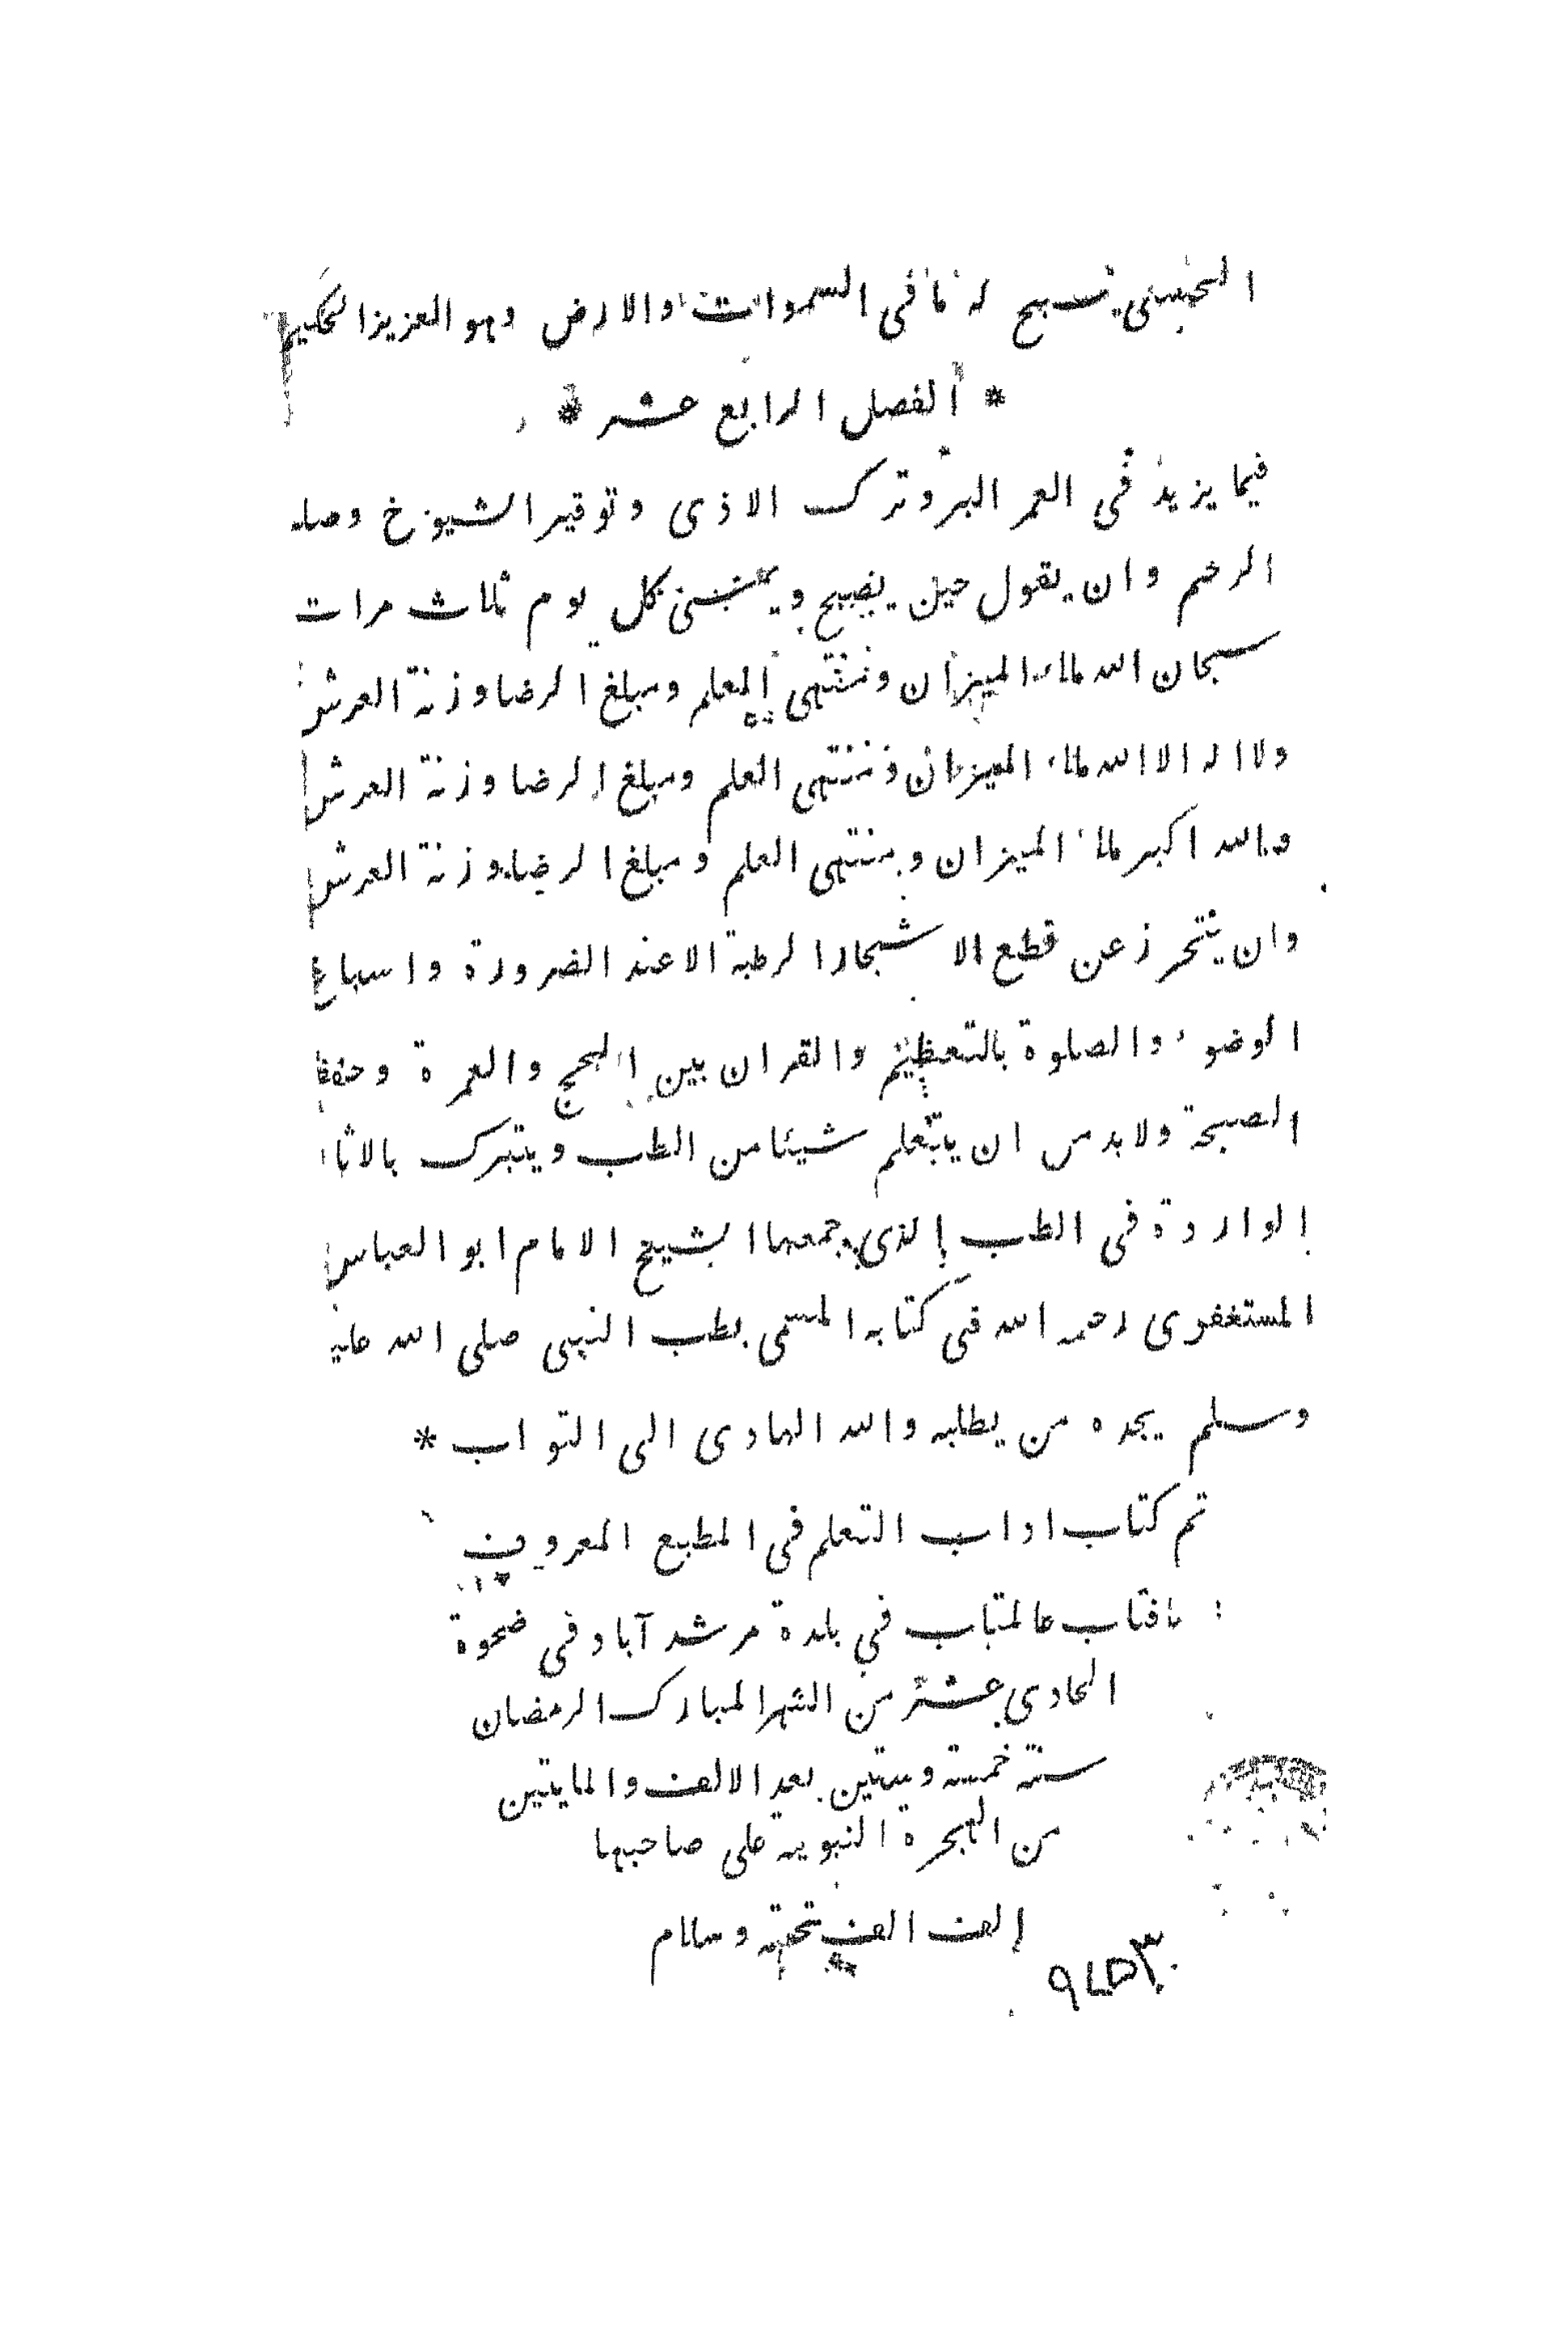 الحسنى يسبح له ما فى السموات والارض وهو العزيز الحكيم
* الفصل الرابع عشر *
فيما يزيد فى العمر البر وترك الاذى وتوقير الشيوخ وصله
الرحم وان يقول حين يصبح ويمسى كل يوم ثلاث مرات
سبحان الله ملاء الميزان ومنتهى العلم ومبلغ الرضا وزنة العرش
ولا اله الا الله ملاء الميزان ومنتهى العلم ومبلغ الرضا وزنة العرش
والله اكبر ملاء الميزان ومنتهى العلم ومبلغ الرضا وزنة العرش
وان يتحرز عن قطع الاشجار الرطبة الا عند الضرورة واسباغ
الوضوء والصلوة بالتعظيم والقران بين الحج والعمرة وحفظ
الصبحة ولابد من ان يتعلم شيئا من الطب ويتبرك بالاثا
الواردة فى الطب الذى جمعها الشيخ الامام ابو العباس
المستغفرى رحمه الله فى كتابه المسمى بطب النبى صلى الله عليه
وسلم يجده من يطلبه والله الهادى الى التواب *
تم كتاب اداب التعلم فى المطبع المعروف
بافتاب عالمتاب في بلدة مرشد آباد فى ضحوة
الحادي عشر من الشهر المبارك الرمضان
سنة خمسة وستين بعد الالف والمايتين
من الهجرة النبوية على صاحبها
الف الف تحية وسلام